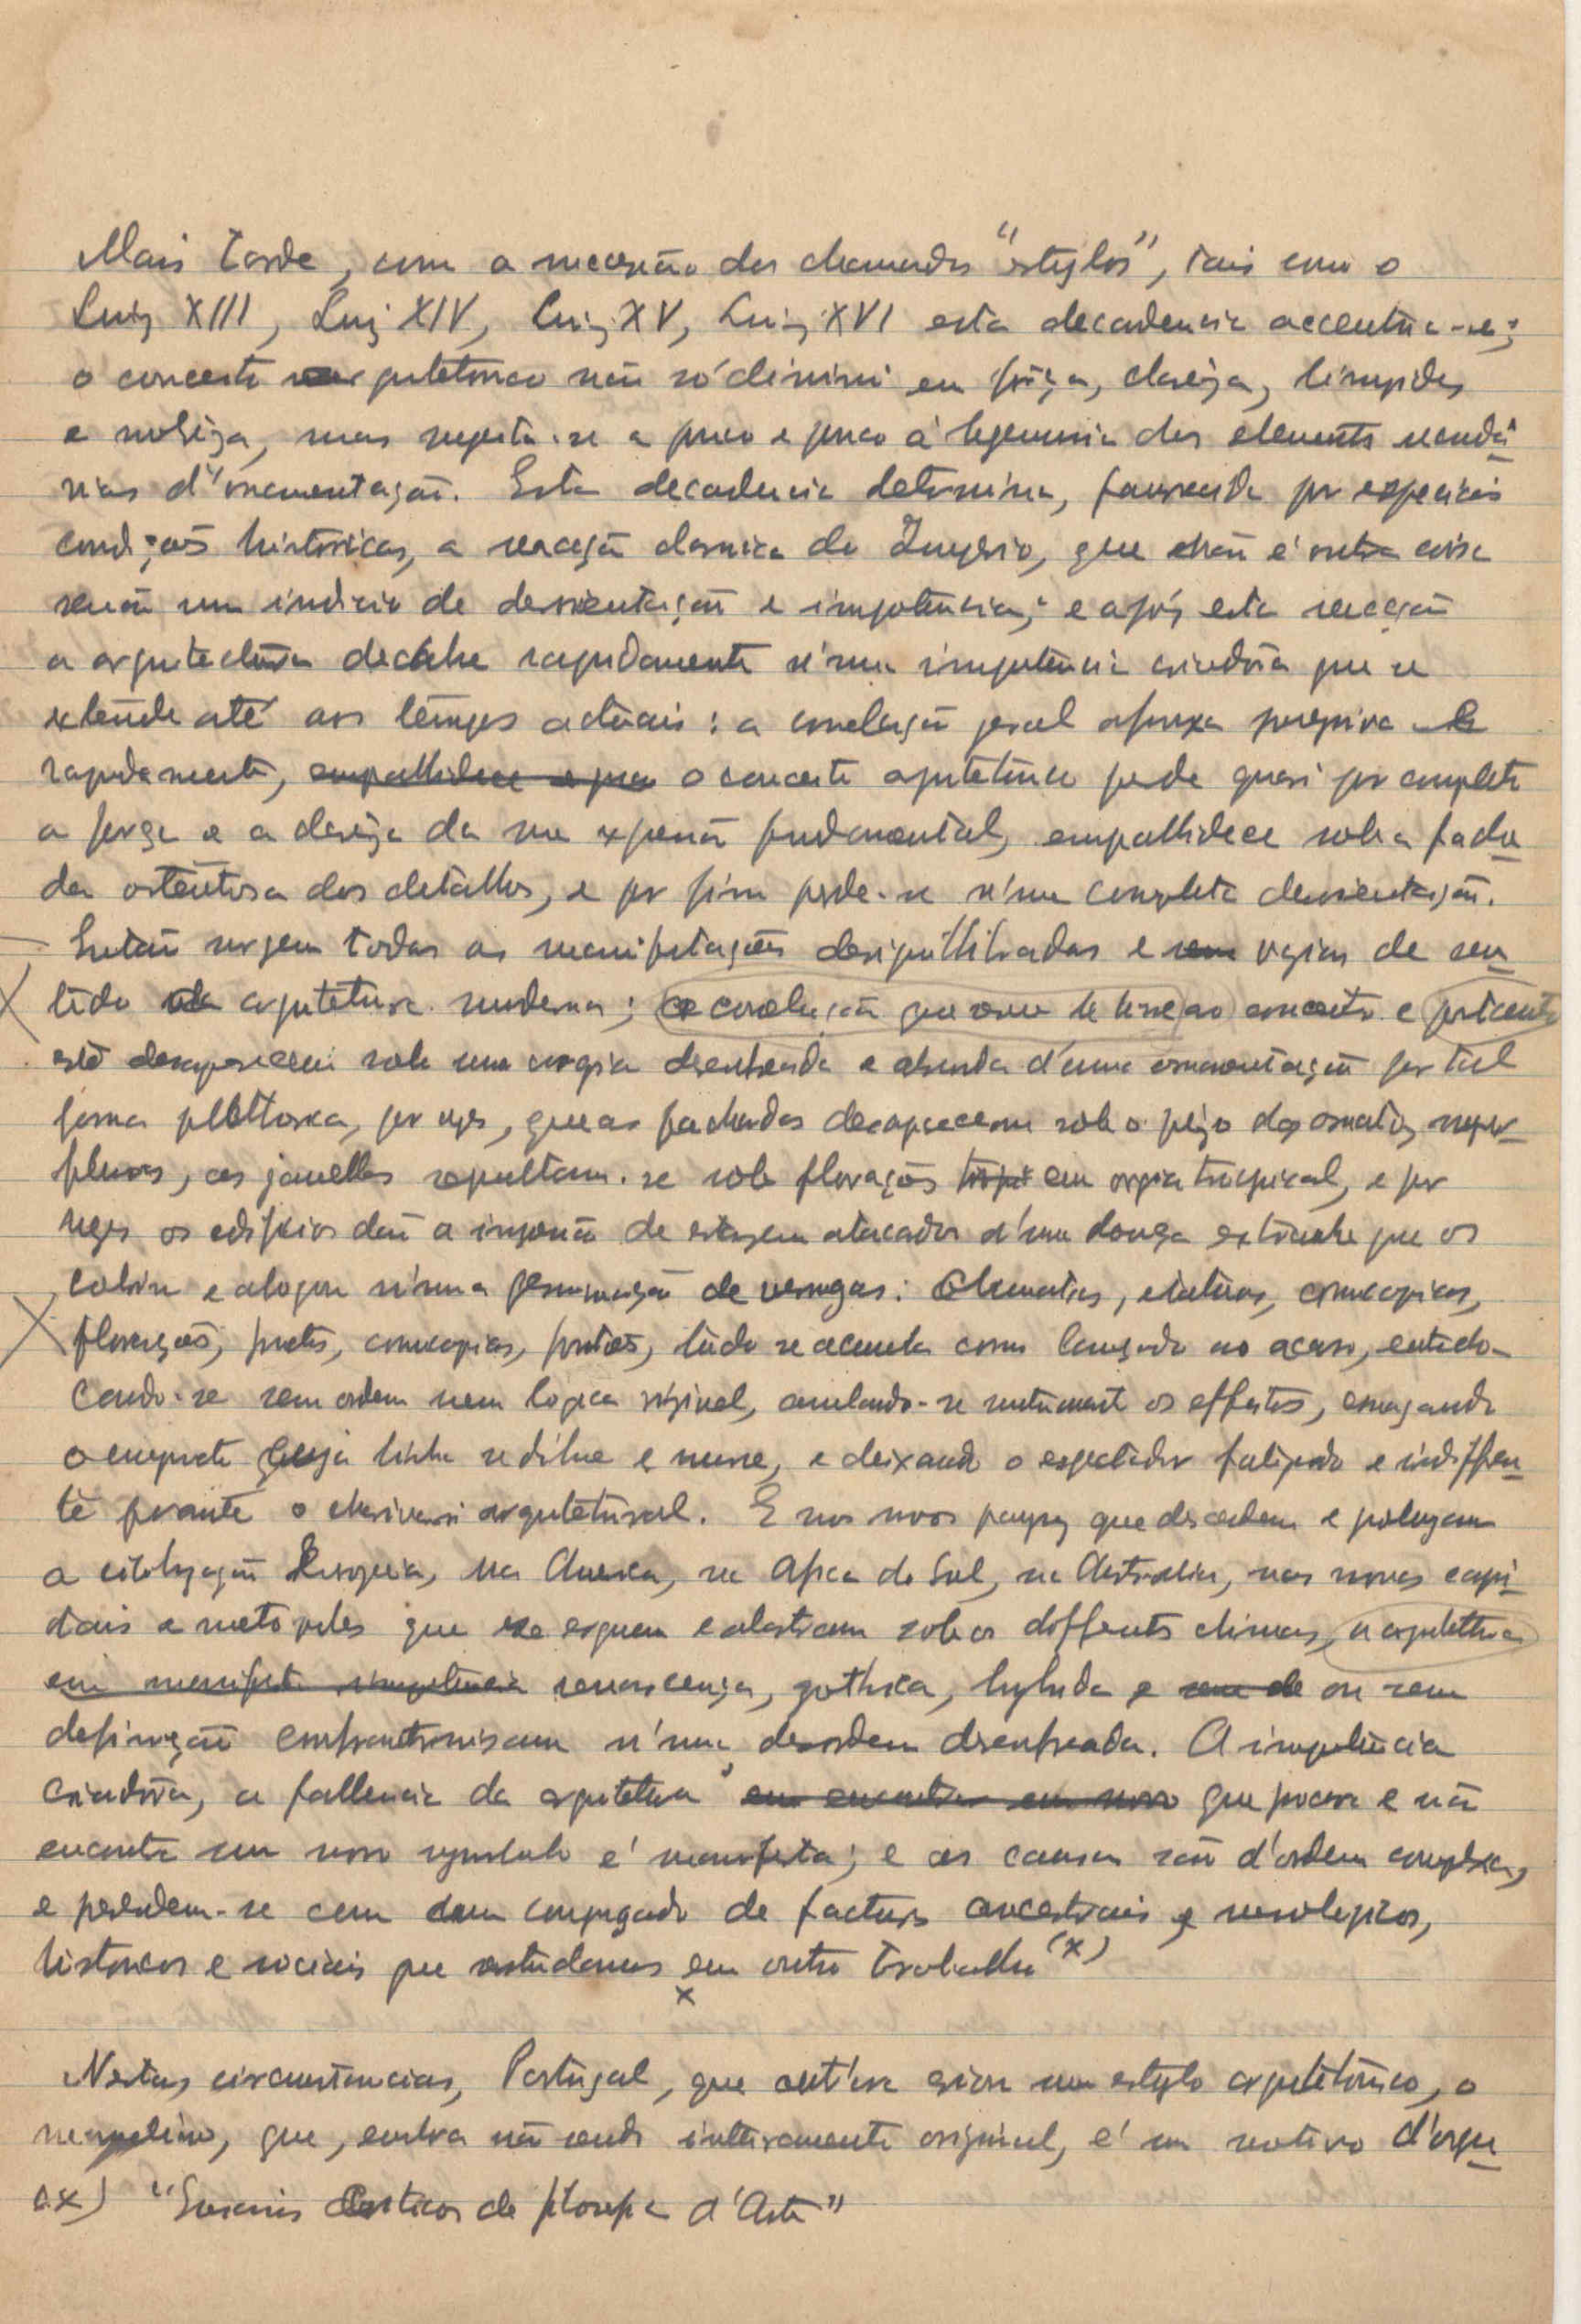 Mais tarde, com a sucessão dos chamados "estylos", tais como o
Luiz XIII, Luiz XIV, Luiz XV, Luiz XVI esta decadencia accentua-se;
o conceito arquitetonico não só diminui em força, clareza, limpidez
e nobreza, mas sujeita-se a pouco e pouco á hegemonia dos elementos secundá
rios d'ornamentação. Esta decadencia determina, favorecida por especiais
condições históricas, a reacção classica do Imperio, que não é outra coisa
senão um indicio de desorientação e impotência; e após esta reacção
a arquitectura decahe rapidamente n'uma impotência criadôra que se
extende até aos tempos actuais: a correlação geral afrouxa
rapidamente, o conceito arquitetónico perde quasi por completo
a força e a clareza da sua expressão fundamental, empallidece sob a facha
da ostentosa dos detalhes, e por fim perde-se n'uma completa desorientação.
Então surgem todas as manifestações desiquilibradas e vazias de sen
tido da arquitetura moderna; a correlação que une de conceito e
desaparecem sob uma orgia desenfreada e absurda d'uma ornamentação por tal
forma plethorica, por vezes, que as fachadas desaparecem sob o pêzo dos ornatos super-
fluos, as janellas sepultam-se sob florações em orgia tropical, e por
vezes os edificios dão a impressão de estarem atacados d'uma doença extranha que os
cobriu e afogou n'uma germinação de verrugas: estatuas, cornucopias,
florações, cornucopias, tudo se acumula como lançado ao acaso, entrecho-
cando-se sem ordem nem logica original, anulando-se mutuamente os effeitos, esmagando
o conjunto cuja linha se dilue e morre, e deixando o espectador fatigado e indifferen
te perante o charivari arquitetural. E nos novos payzes que descendem e prolongam
a civilização Europeia, na America, na Africa do Sul, na Australia, nas novas capi
tais e metropoles que se erguem e alastram sob os differentes climas, a arquitetura
em manifesta impotência renascença, gothica, hybrida e ou sem
definição n'uma desordem desenfreada. A impotência
criadôra, a fallencia da arquitetura que procura e não
encontra um novo symbolo é manifesta; e as causas são d'ordem complexa,
e prendem-se com um conjugado de factores ancestrais e
históricos e sociais que estudamos em outro trabalho (x)
x
Nestas circumstancias, Portugal, que outr'ora criou um estylo arquitetónico, o
manuelino, que, embora não sendo inteiramente original, é um motivo d'orgu
(x) "Ensaios Criticos de filosofia d'Arte"